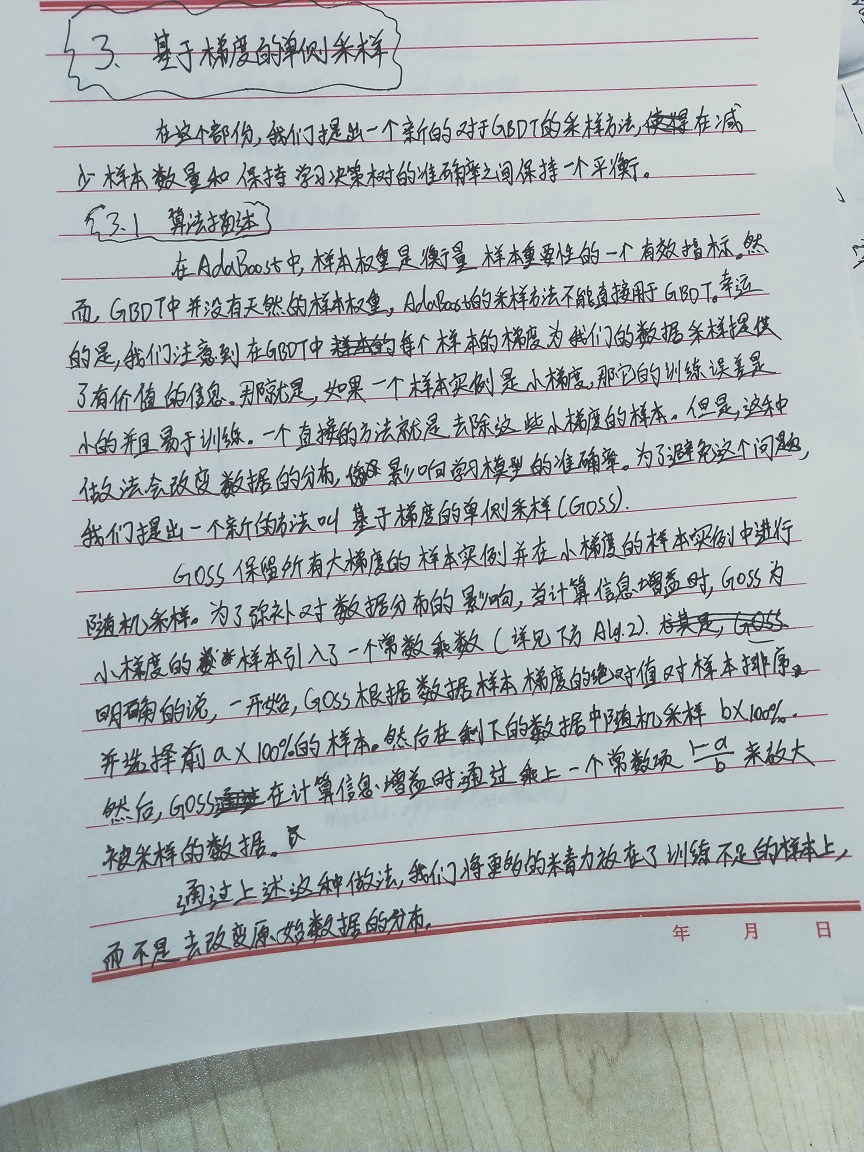 3、基于梯度的单侧采样
在这个部份,我们提出一个新的对于GBDT的采样方法,在减
少样本数量和保持学习决策树的准确率之间保持一个平衡。
3.1 算法描述
在AdaBoost中,样本权重是衡量样本重要性的一个有效指标。然
而,GBDT中并没有天然的样本权重,AdaBoost的采样方法不能直接用于GBDT。幸运
的是,我们注意到在GBDT中每个样本的梯度为我们的数据采样提供
了有价值的信息。那就是,如果一个样本实例是小梯度,那它的训练误差是
小的并且易于训练。一个直接的方法就是去除这些小梯度的样本。但是,这种
做法会改变数据的分布,影响学习模型的准确率。为了避免这个问题,
我们提出一个新的方法叫基于梯度的单侧采样(GOSS).
GOSS保留所有大梯度的样本实例并在小梯度的样本实例中进行
随机采样。为了弥补对数据分布的影响,当计算信息增益时,GOSS为
小梯度的样本引入了一个常数乘数(详见下方Alg.2).
明确的说,一开始,GOSS根据数据样本梯度的绝对值对样本排序。
并选择前a×100%的样本。然后在剩下的数据中随机采样b×100%.
然后,GOSS在计算信息增益时通过乘上一个常数项 (1-a)/b 来放大
被采样的数据。
通过上述这种做法,我们将更多的注意力放在了训练不足的样本上,
而不是去改变原始数据的分布。
年 月 日